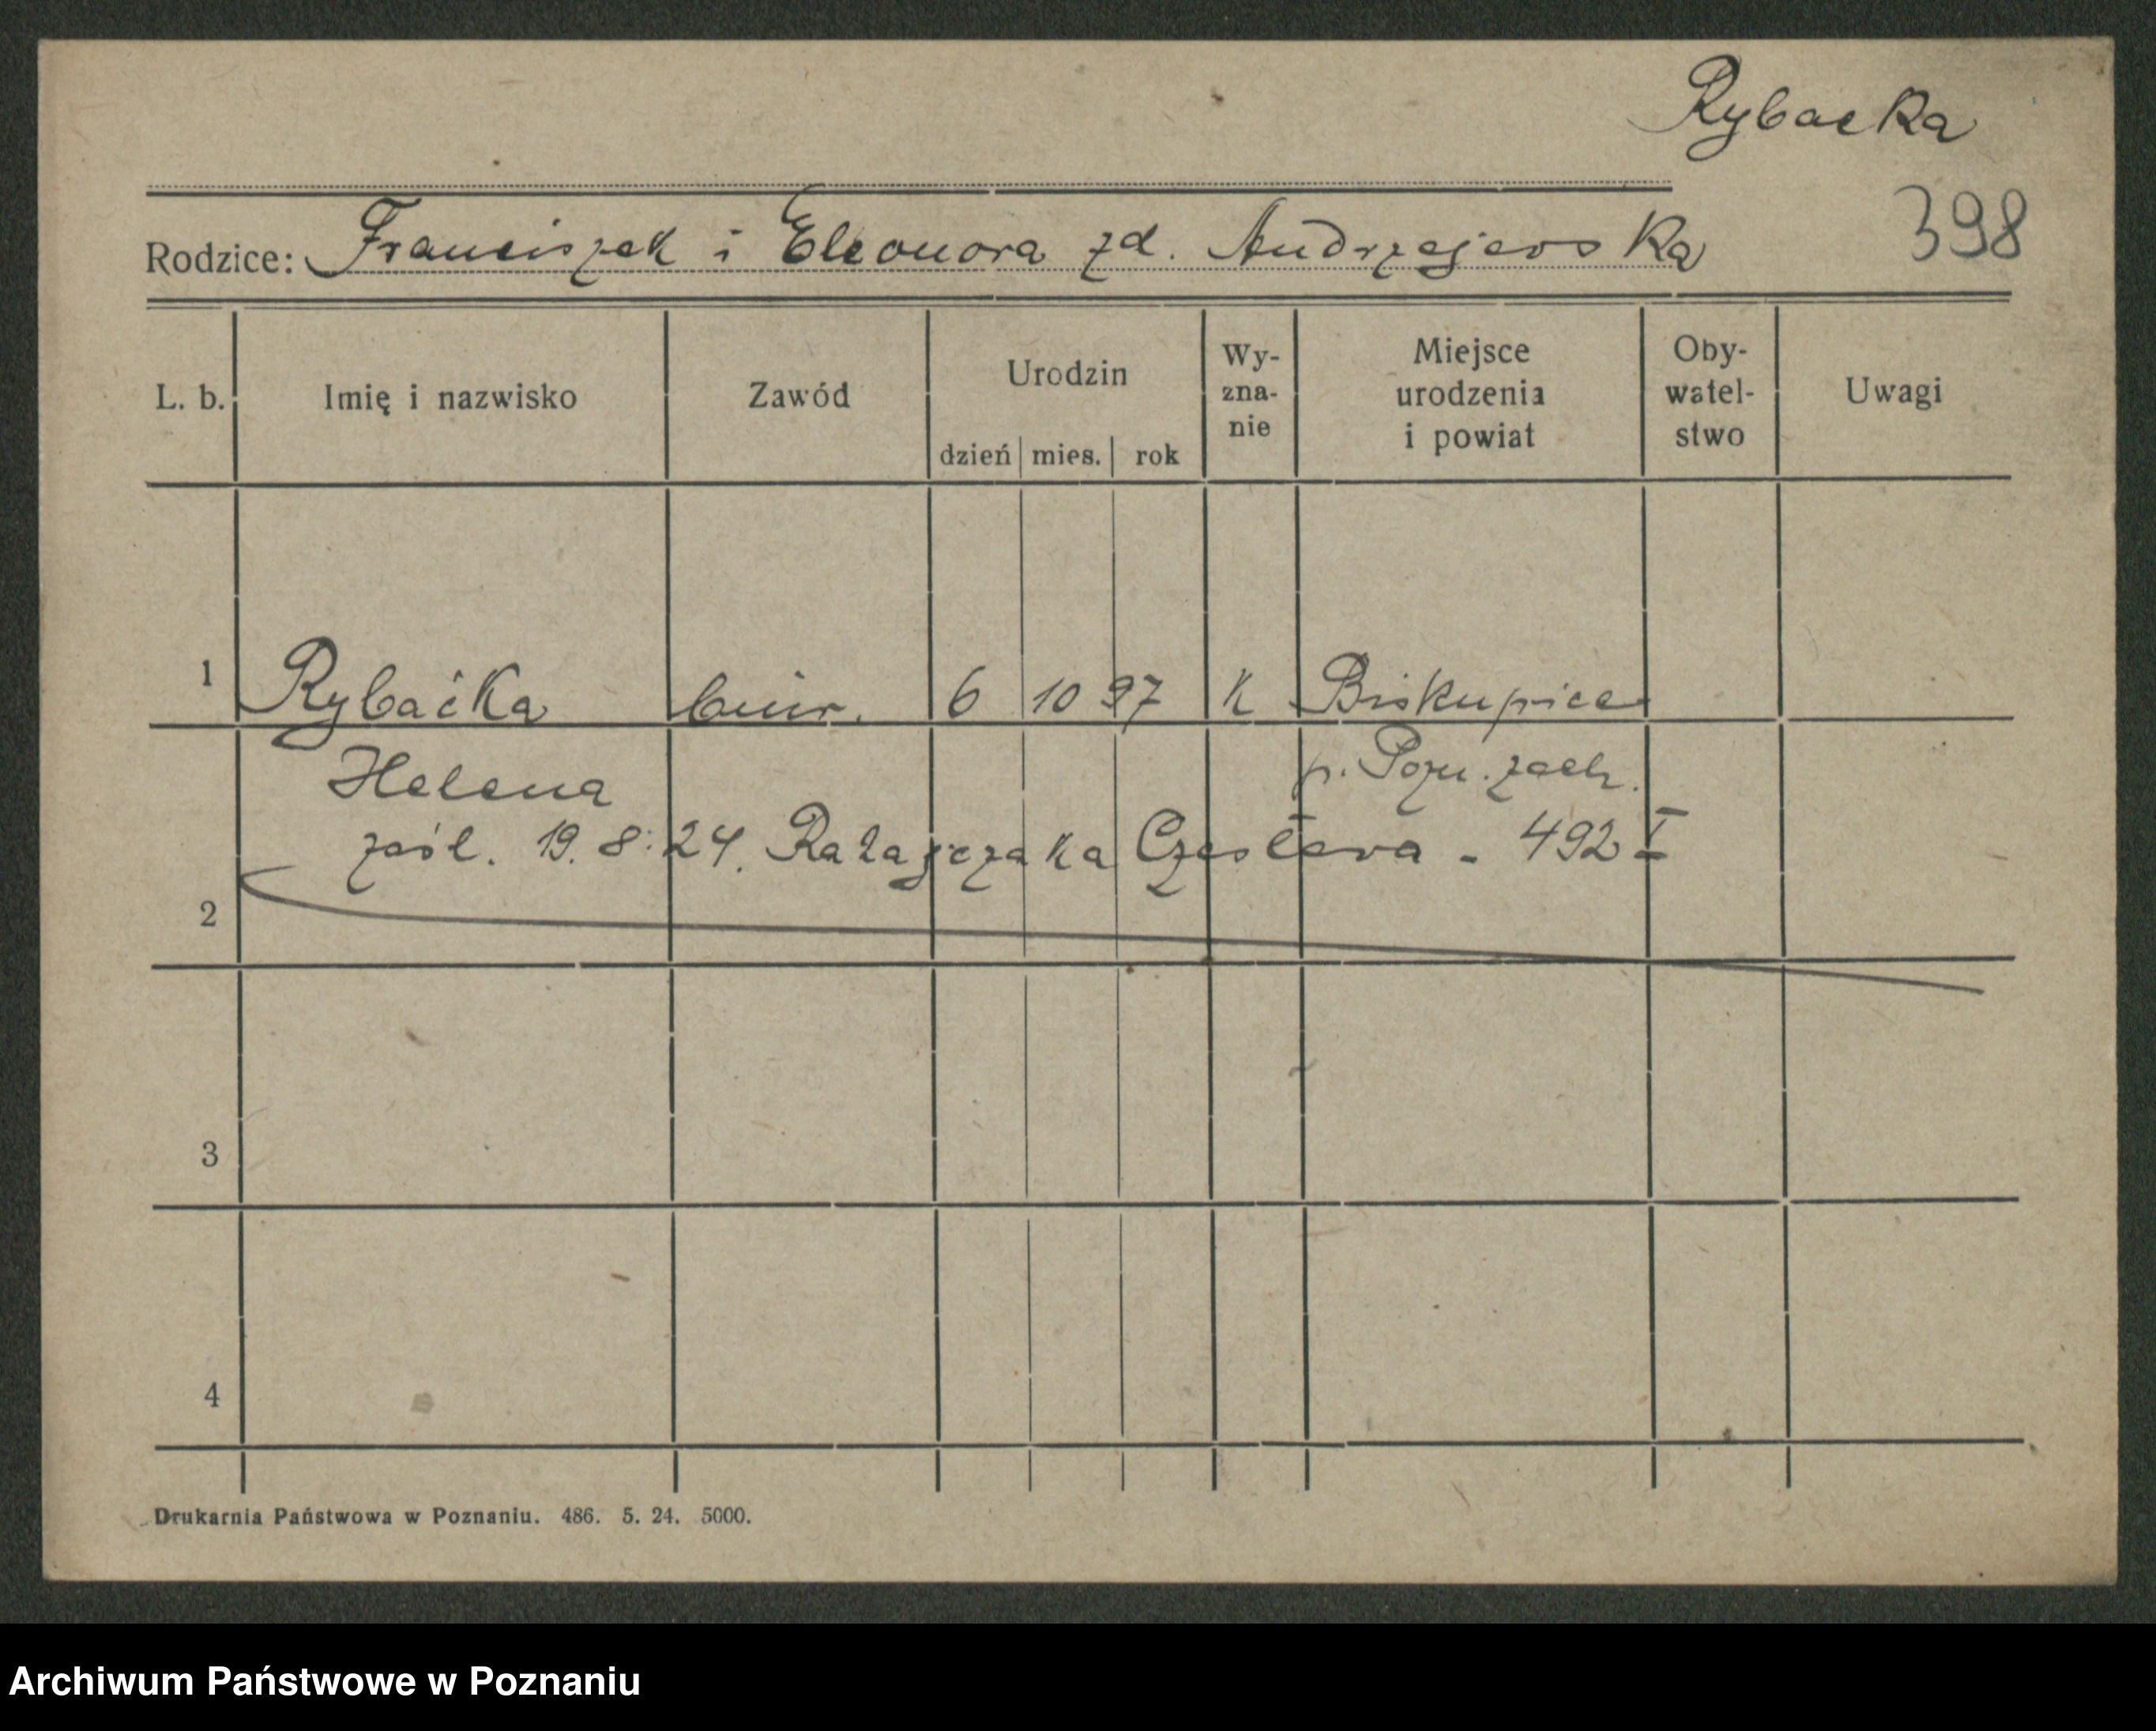 Rybacka
398
Rodzice: Franciszek i Eleonora zd. Andrzejewska
L. b. Imię i nazwisko Zawód Urodzin dzień mies. rok Wy-zna-nie Miejsce urodzenia i powiat Oby-watel-stwo Uwagi
1 Rybacka biur. 6 10 97 K Biskupice
Helena p. Pozn. zach.
zaśl. 19. 8. 24. Ratajczaka Czesława - 492 I
2
3
4
Drukarnia Państwowa w Poznaniu. 486. 5. 24. 5000.
Archiwum Państwowe w Poznaniu